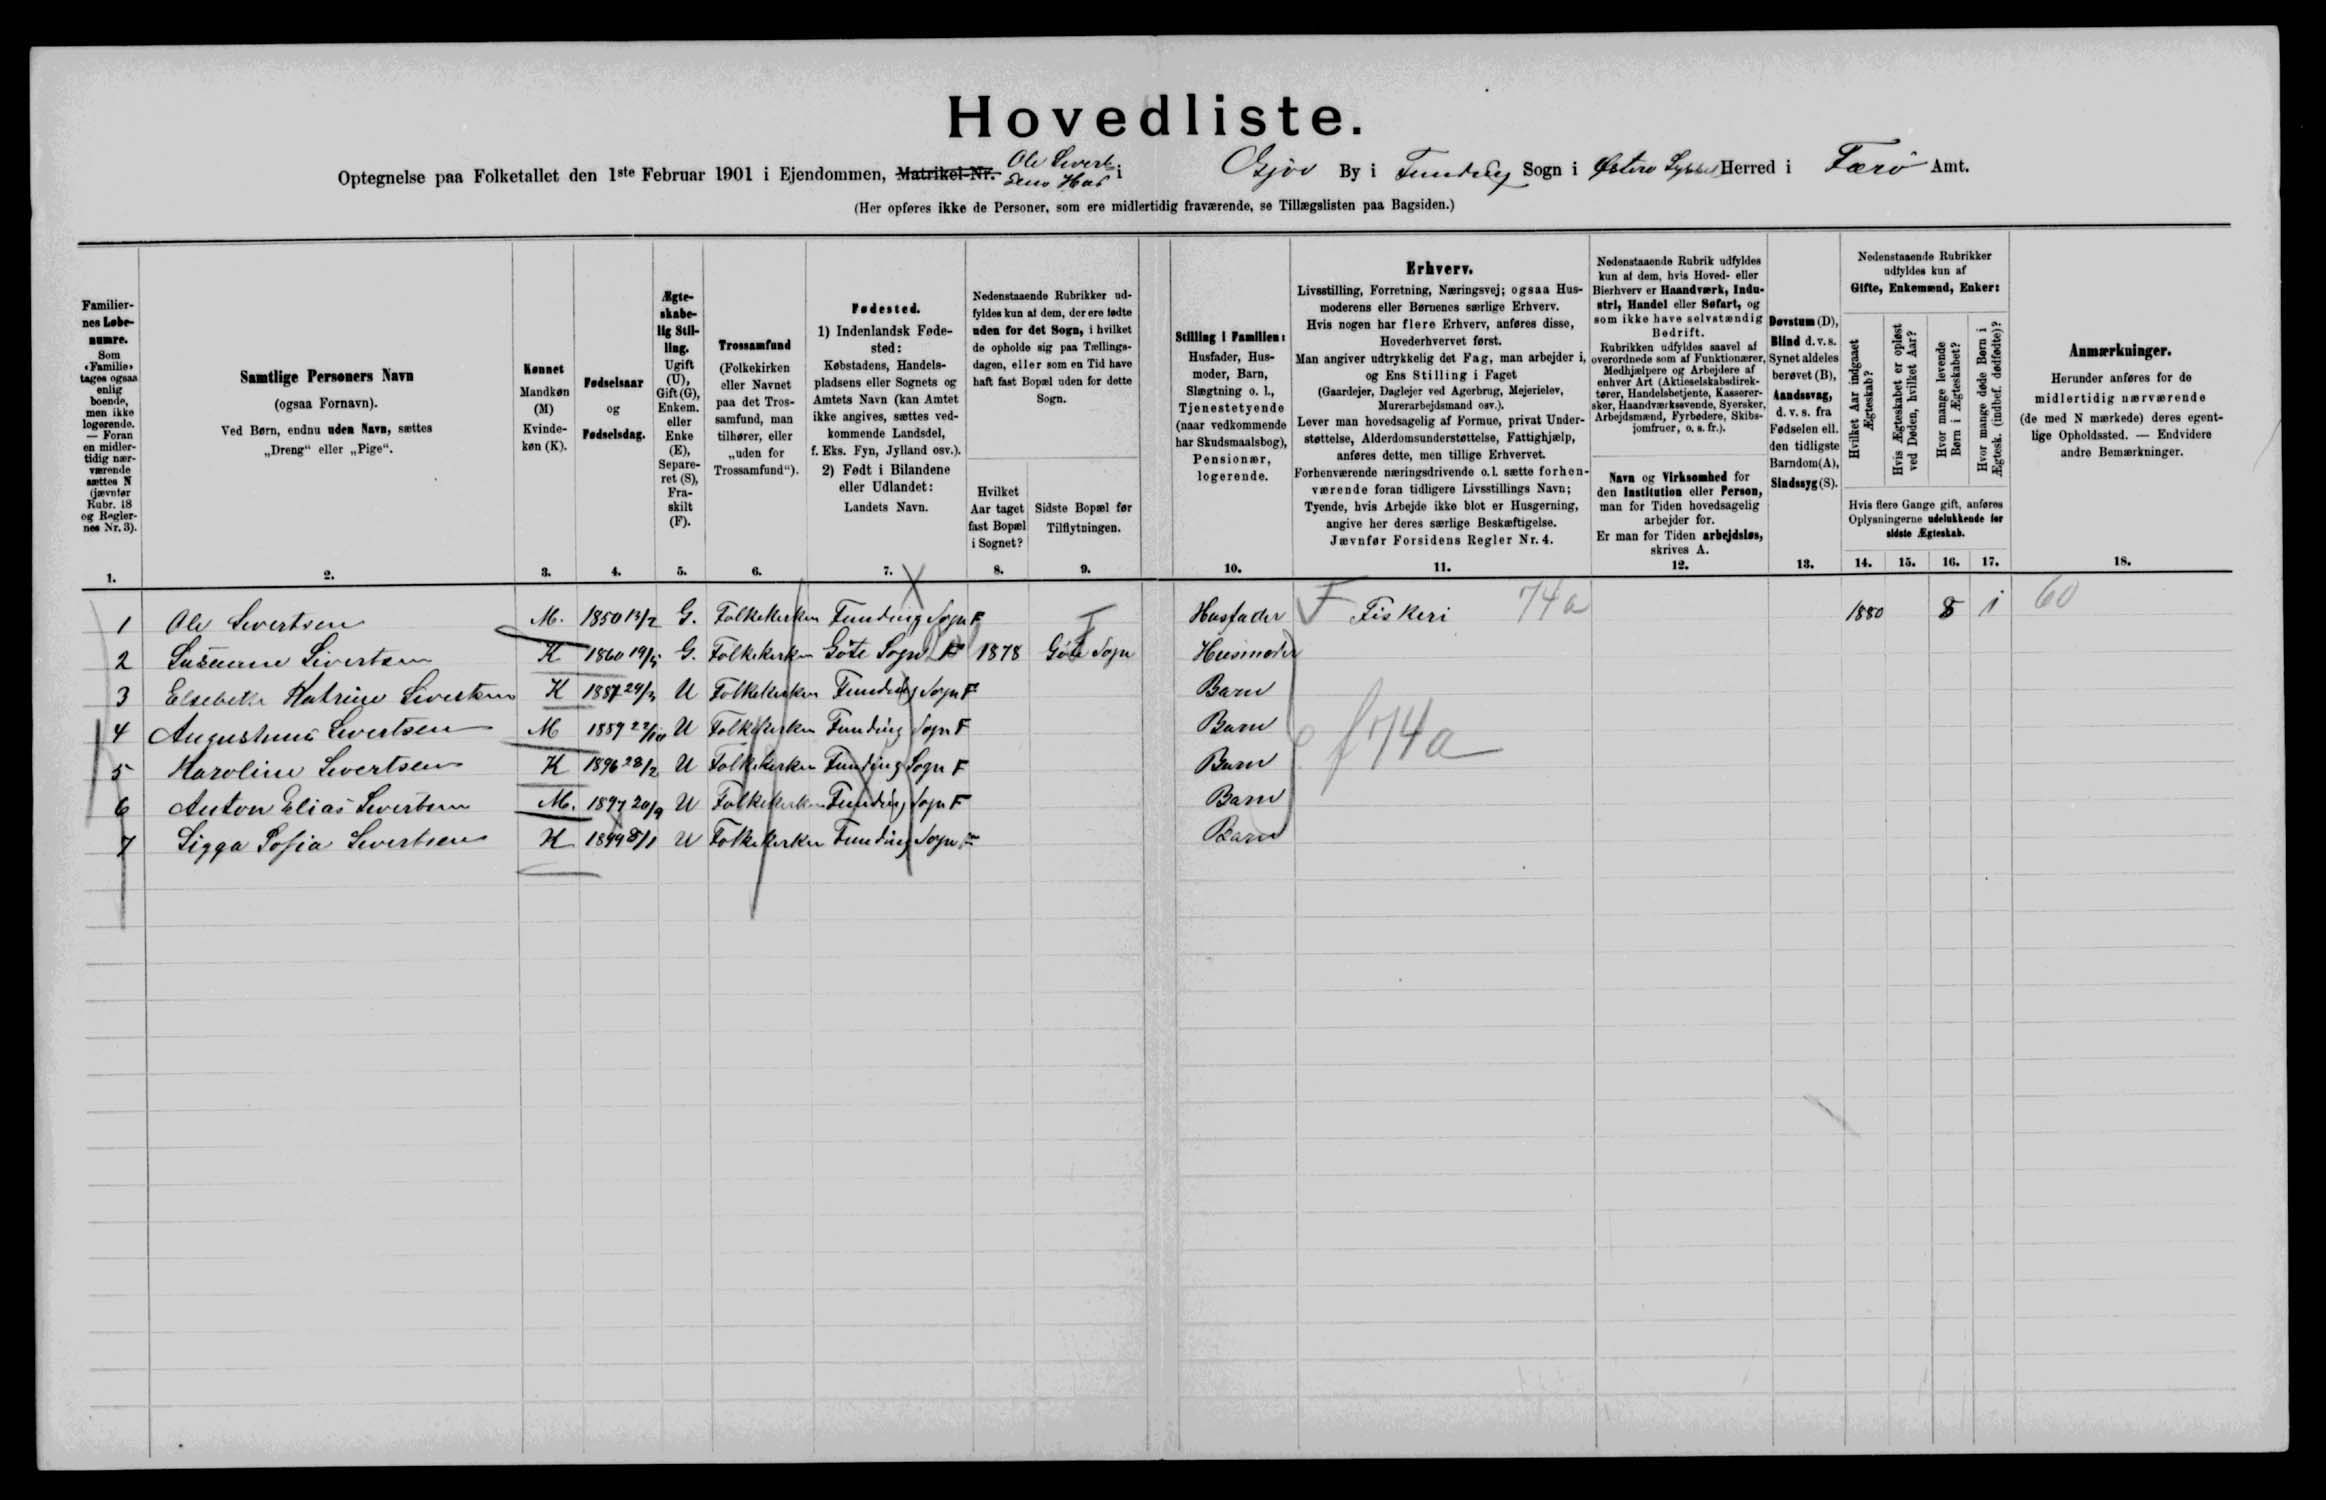 Hovedliste.
Optegnelse paa Folketallet den 1ste Februar 1901 i Ejendommen, Matrikel-Nr. Ole Sivertsens Hus i Gjov By i Funding Sogn i Østerø Syssel Herred i Færø Amt.
(Her opføres ikke de Personer, som ere midlertidig fraværende, se Tillægslisten paa Bagsiden.)
Familiernes Løbenumre. Som «Familie» tages ogsaa enlig boende, men ikke logerende. — Foran en midlertidig nærværende sættes N (jævnfør Rubr. 18 og Reglernes Nr. 3).
Samtlige Personers Navn (ogsaa Fornavn). Ved Børn, endnu uden Navn, sættes „Dreng“ eller „Pige“.
Kønnet Mandkøn (M) Kvindekøn (K).
Fødselsaar og Fødselsdag.
Ægteskabelig Stilling. Ugift (U), Gift (G), Enkem. eller Enke (E), Separeret (S), Fraskilt (F).
Trossamfund (Folkekirken eller Navnet paa det Trossamfund, man tilhører, eller „uden for Trossamfund“).
Fødested. 1) Indenlandsk Fødested: Købstadens, Handelspladsens eller Sognets og Amtets Navn (kan Amtet ikke angives, sættes vedkommende Landsdel, f. Eks. Fyn, Jylland osv.). 2) Født i Bilandene eller Udlandet: Landets Navn.
Nedenstaaende Rubrikker udfyldes kun af dem, der ere fødte uden for det Sogn, i hvilket de opholde sig paa Tællingsdagen, eller som en Tid have haft fast Bopæl uden for dette Sogn.
Hvilket Aar taget fast Bopæl i Sognet?
Sidste Bopæl før Tilflytningen.
Stilling i Familien: Husfader, Husmoder, Barn, Slægtning o. l., Tjenestetyende (naar vedkommende har Skudsmaalsbog), Pensionær, logerende.
Erhverv.
Livsstilling, Forretning, Næringsvej; ogsaa Husmoderens eller Børnenes særlige Erhverv.
Hvis nogen har flere Erhverv, anføres disse, Hovederhvervet først.
Man angiver udtrykkelig det Fag, man arbejder i, og Ens Stilling i Faget
(Gaardejer, Daglejer ved Agerbrug, Mejerielev, Murerarbejdsmand osv.).
Lever man hovedsagelig af Formue, privat Understøttelse, Alderdomsunderstøttelse, Fattighjælp, anføres dette, men tillige Erhvervet.
Forhenværende næringsdrivende o. l. sætte forhenværende foran tidligere Livsstillings Navn; Tyende, hvis Arbejde ikke blot er Husgerning, angive her deres særlige Beskæftigelse.
Jævnfør Forsidens Regler Nr. 4.
Nedenstaaende Rubrik udfyldes kun af dem, hvis Hoved- eller Bierhverv er Haandværk, Industri, Handel eller Søfart, og som ikke have selvstændig Bedrift.
Rubrikken udfyldes saavel af overordnede som af Funktionærer, Medhjælpere og Arbejdere af enhver Art (Aktieselskabsdirektører, Handelsbetjente, Kasserersker, Haandværkssvende, Syersker, Arbejdsmænd, Fyrbødere, Skibsjomfruer, o. s. fr.).
Navn og Virksomhed for den Institution eller Person, man for Tiden hovedsagelig arbejder for.
Er man for Tiden arbejdsløs, skrives A.
Døvstum (D), Blind d. v. s. Synet aldeles berøvet (B), Aandssvag, d. v. s. fra Fødselen ell. den tidligste Barndom (A), Sindssyg (S).
Nedenstaaende Rubrikker udfyldes kun af Gifte, Enkemænd, Enker:
Hvilket Aar indgaaet Ægteskab?
Hvis Ægteskabet er opløst ved Døden, hvilket Aar?
Hvor mange levende Børn i Ægteskabet?
Hvor mange døde Børn i Ægtesk. (indbef. dødfødte)?
Hvis flere Gange gift, anføres Oplysningerne udelukkende for sidste Ægteskab.
Anmærkninger.
Herunder anføres for de midlertidig nærværende (de med N mærkede) deres egentlige Opholdssted. — Endvidere andre Bemærkninger.
1. 2. 3. 4. 5. 6. 7. 8. 9. 10. 11. 12. 13. 14. 15. 16. 17. 18.
1 Ole Sivertsen M. 1850 13/2 G. Folkekirken Funding Sogn F Husfader F Fiskeri 74a 1880 8 1 60
2 Susanne Sivertsen K 1860 G. Folkekirken Göte Sogn F 1878 Göte Sogn Husmoder
3 Elsebeth Katrine Sivertsen K U Folkekirken Funding Sogn F Barn
4 Augustinus Sivertsen M 1889 22/10 U Folkekirken Funding Sogn F Barn f 74a
5 Karoline Sivertsen K 1896 28/2 U Folkekirken Funding Sogn F Barn
6 Anton Elias Sivertsen M. 1897 20/9 U Folkekirken Funding Sogn F Barn
7 Sigga Sofia Sivertsen K 1899 8/1 U Folkekirken Funding Sogn F Barn